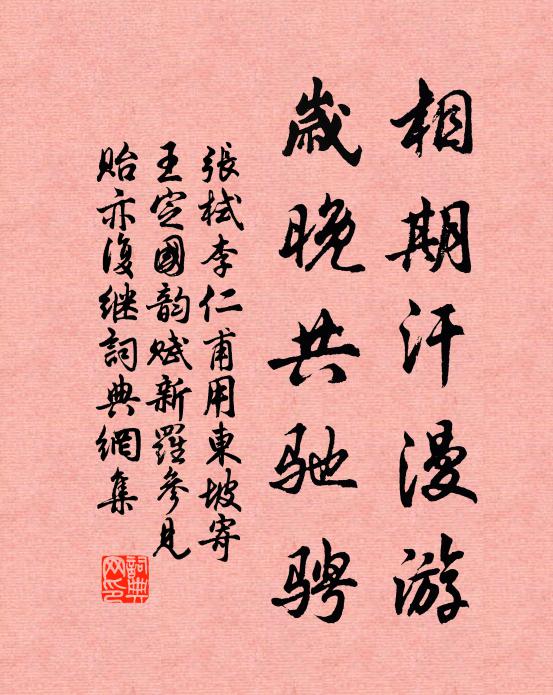 相期汗漫游
歲晚共驰骋
張栻李仁甫用東坡寄
王定國韵赋新羅參見
贻亦復继詞典網集
詞典網印